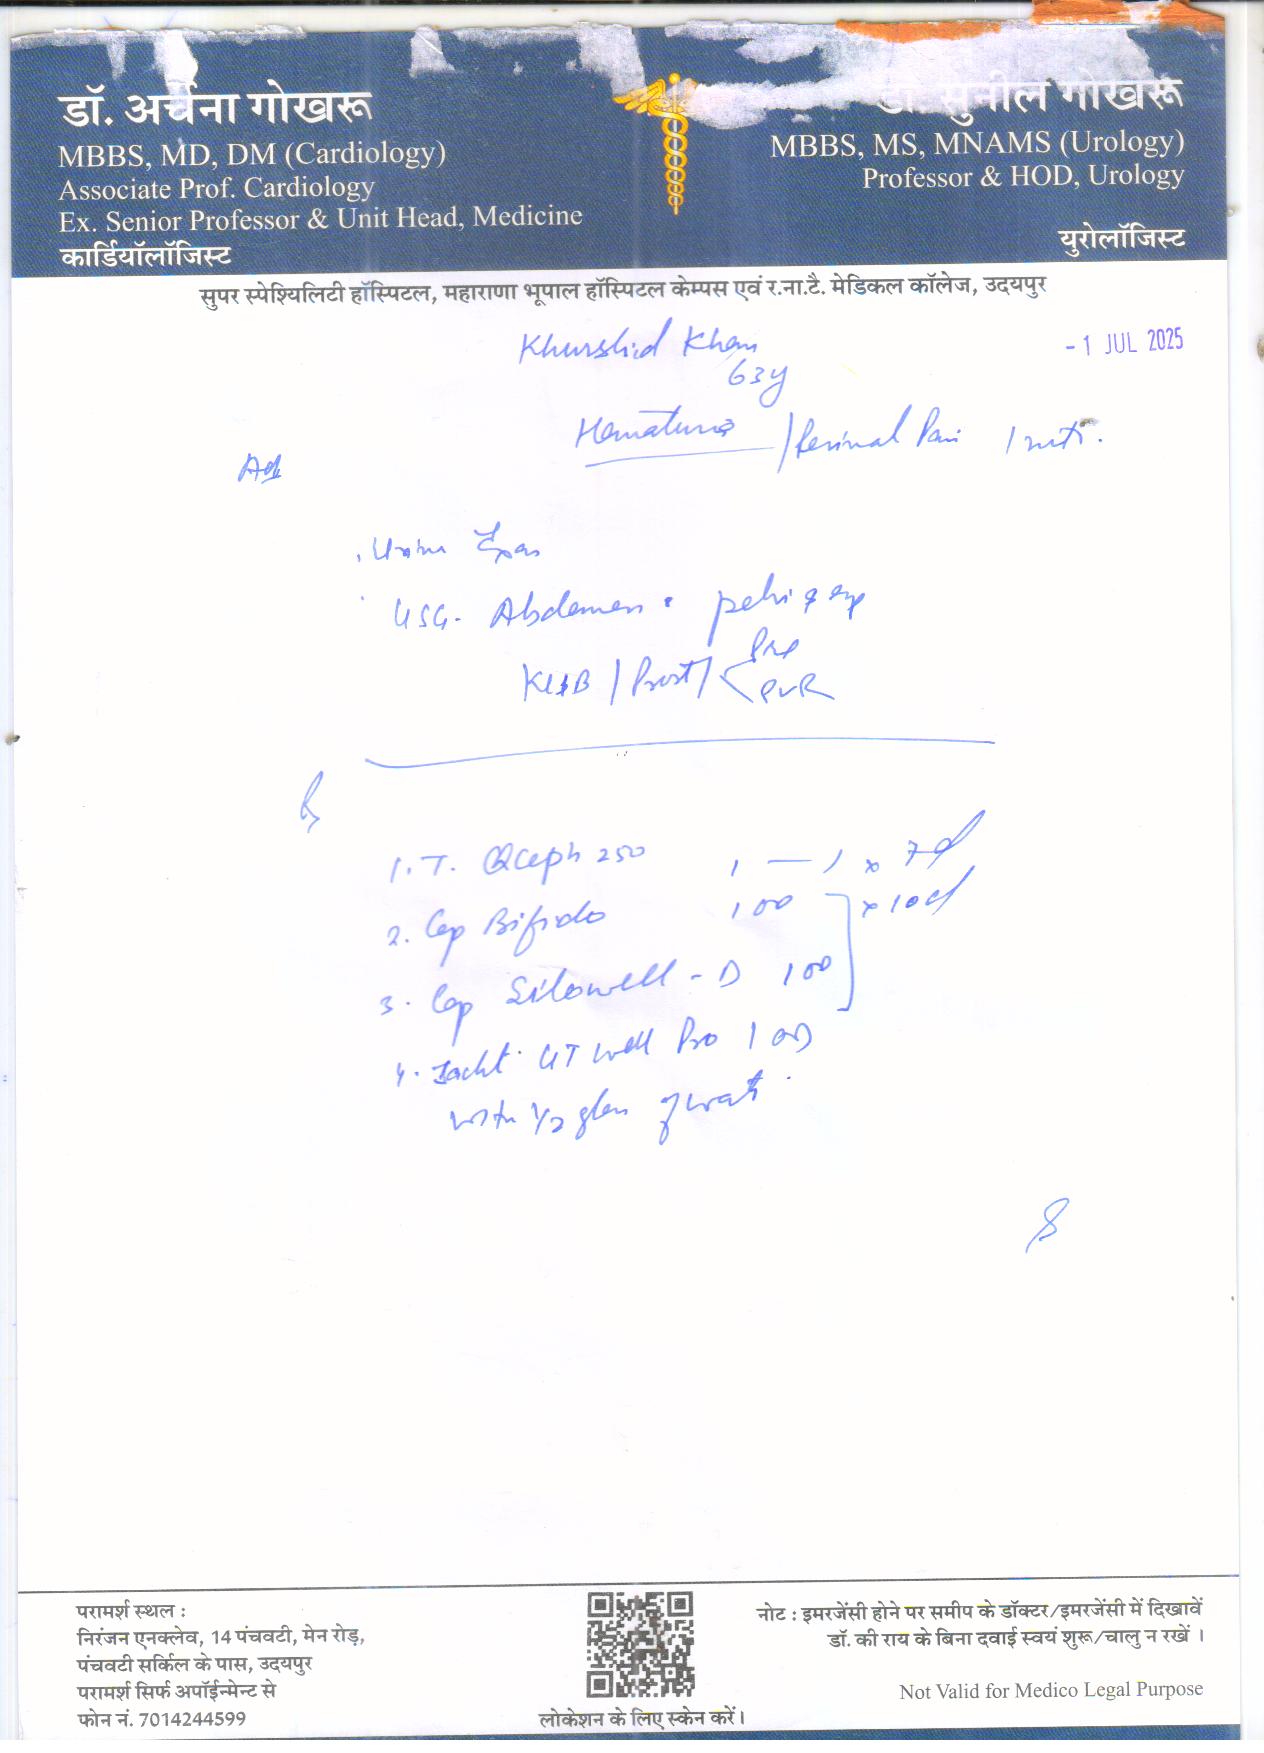 डॉ. अर्चना गोखरू
MBBS, MD, DM (Cardiology)
Associate Prof. Cardiology
Ex. Senior Professor & Unit Head, Medicine
कार्डियॉलॉजिस्ट
डॉ. सुनील गोखरू
MBBS, MS, MNAMS (Urology)
Professor & HOD, Urology
युरोलॉजिस्ट
सुपर स्पेश्यिलिटी हॉस्पिटल, महाराणा भूपाल हॉस्पिटल केम्पस एवं र.ना.टै. मेडिकल कॉलेज, उदयपुर
Khurshid Khan
- 1 JUL 2025
63y
Hematuria / Perineal Pain 1
Adv
Urine
USG. Abdomen
KUB / Prost / Pre
PVR
Rx
1. T. Qceph 250 1 — 1 x 7d
2. Cap Bifido 1 OD x 10d
3. Cap Silowell - D 1 OD
4. Sachet UT Well Pro 1 OD
with 1/2 glass of water
परामर्श स्थल :
निरंजन एनक्लेव, 14 पंचवटी, मेन रोड़,
पंचवटी सर्किल के पास, उदयपुर
परामर्श सिर्फ अपॉईन्मेन्ट से
फोन नं. 7014244599
लोकेशन के लिए स्केन करें।
नोट : इमरजेंसी होने पर समीप के डॉक्टर/इमरजेंसी में दिखावें
डॉ. की राय के बिना दवाई स्वयं शुरू/चालु न रखें ।
Not Valid for Medico Legal Purpose